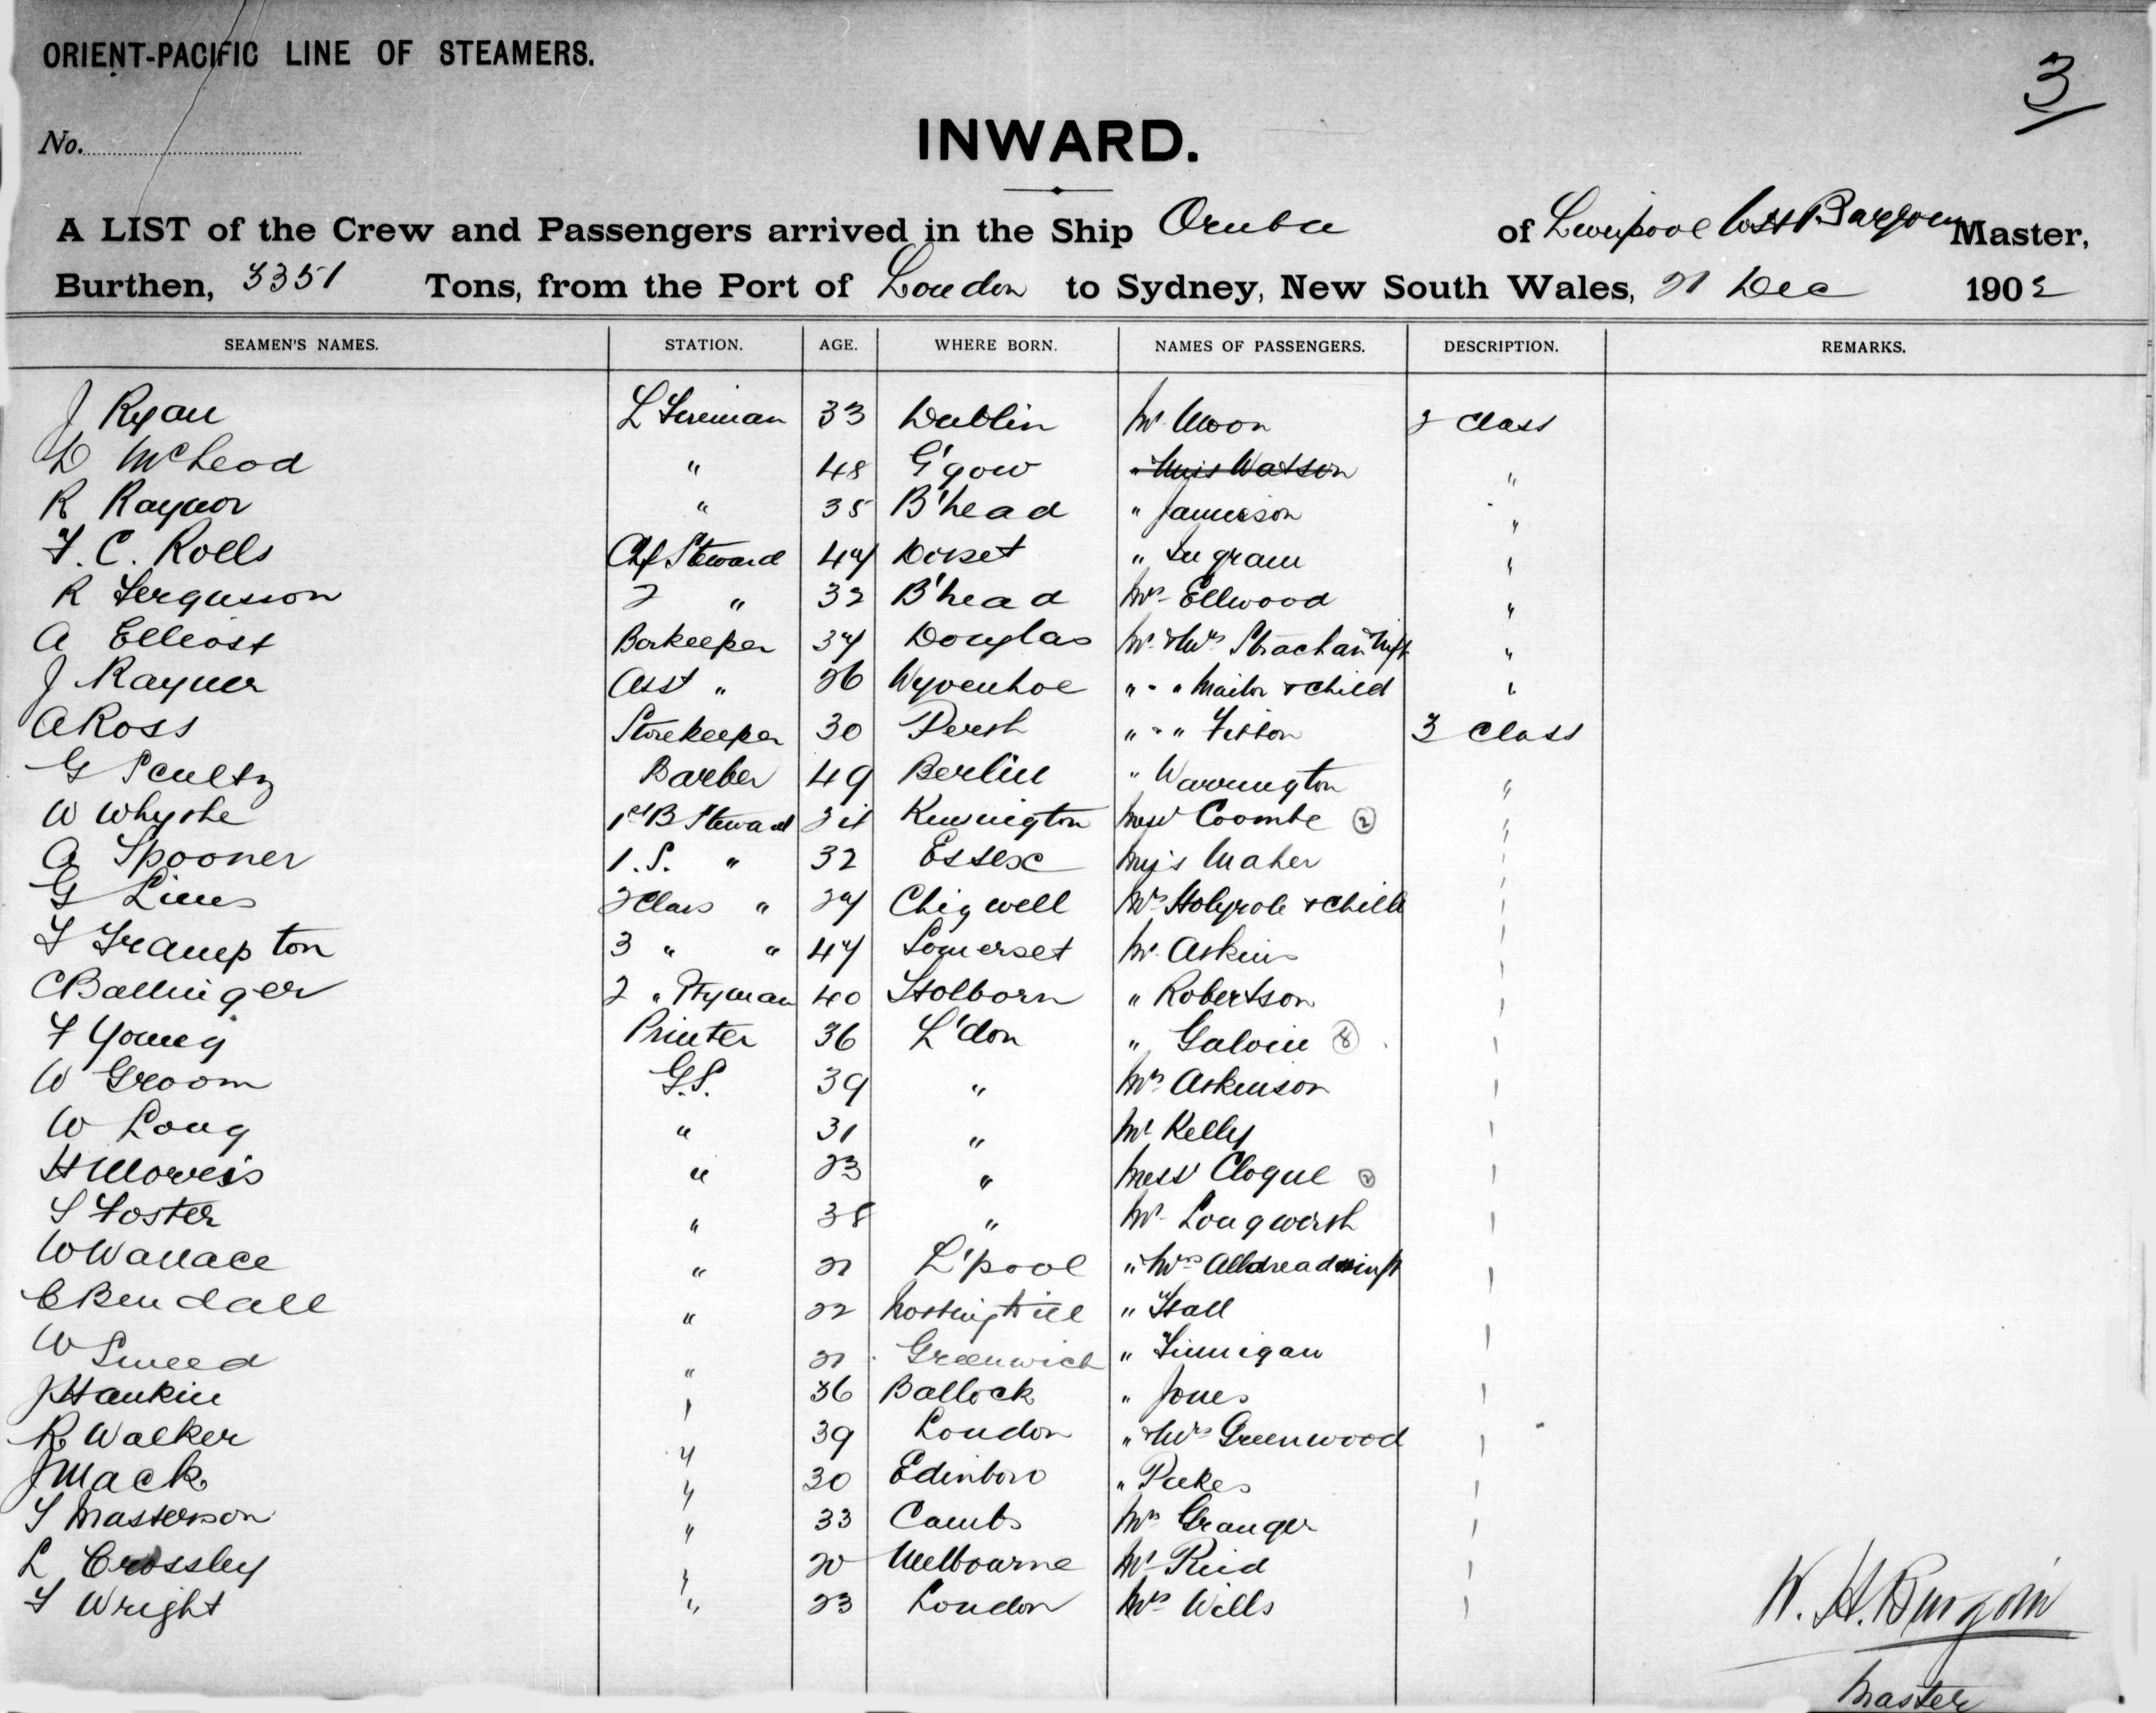 ORIENT-PACIFIC LINE OF STEAMERS.
3
No.
INWARD.
A LIST of the Crew and Passengers arrived in the Ship Oruba of Liverpool Master,
Burthen, 3351 Tons, from the Port of London to Sydney, New South Wales, 21 Dec 1902
SEAMEN'S NAMES. STATION. AGE. WHERE BORN. NAMES OF PASSENGERS. DESCRIPTION. REMARKS.
J Ryan L Fireman 33 Dublin Mr Moon 2 Class
D McLeod " 48 G'gow " Miss Watson "
R Raynor " 35 B'head " Jamieson "
F. C. Rolls Chf Steward 44 Dorset " Ingram "
R Fergusson 2 " 32 B'head Mrs Ellwood "
A Elliott Barkeeper 34 Douglas Mr & Mrs Strachan & inft "
J Rayner Asst " 26 Wyvenhoe " " " Mailor & child "
A Ross Storekeeper 30 Perth " " " Fitton 3 Class
G Scultz Barber 49 Berlin " Warrington "
W Whyte 1st B Steward Kennington Mess Coombe (2) "
A Spooner 1. S. " 32 Essex Miss Maher "
G Lines 2 Class " 24 Chigwell Mrs Holyrole & child "
F Frampton 3 " " 44 Somerset Mr Askins "
C Ballinger 2 " Ptyman 40 Holborn " Robertson "
F Young Printer 36 L'don " Galvin (8) "
W Groom G.S. 39 " Mrs Atkinson "
W Long " 31 " Mr Kelly "
H Morris " 23 " Mess Clogue (2) "
S Foster " 38 " Mr Longworth "
W Wallace " 21 L'pool " Mrs Alldread & inft "
C Bendall " 22 Nottinghill " Hall "
W Sneed " 21 Greenwich " Finnigan "
J Hankin " 36 Ballock " Jones "
R Walker " 39 London " & Mrs Greenwood "
J Mack " 30 Edinboro " Peekes "
S Masterson " 33 Cambs Mrs Granger "
L Crossley " 20 Melbourne Mr Reid "
F Wright " 23 London Mrs Wills "
W. H. Burgoin
Master